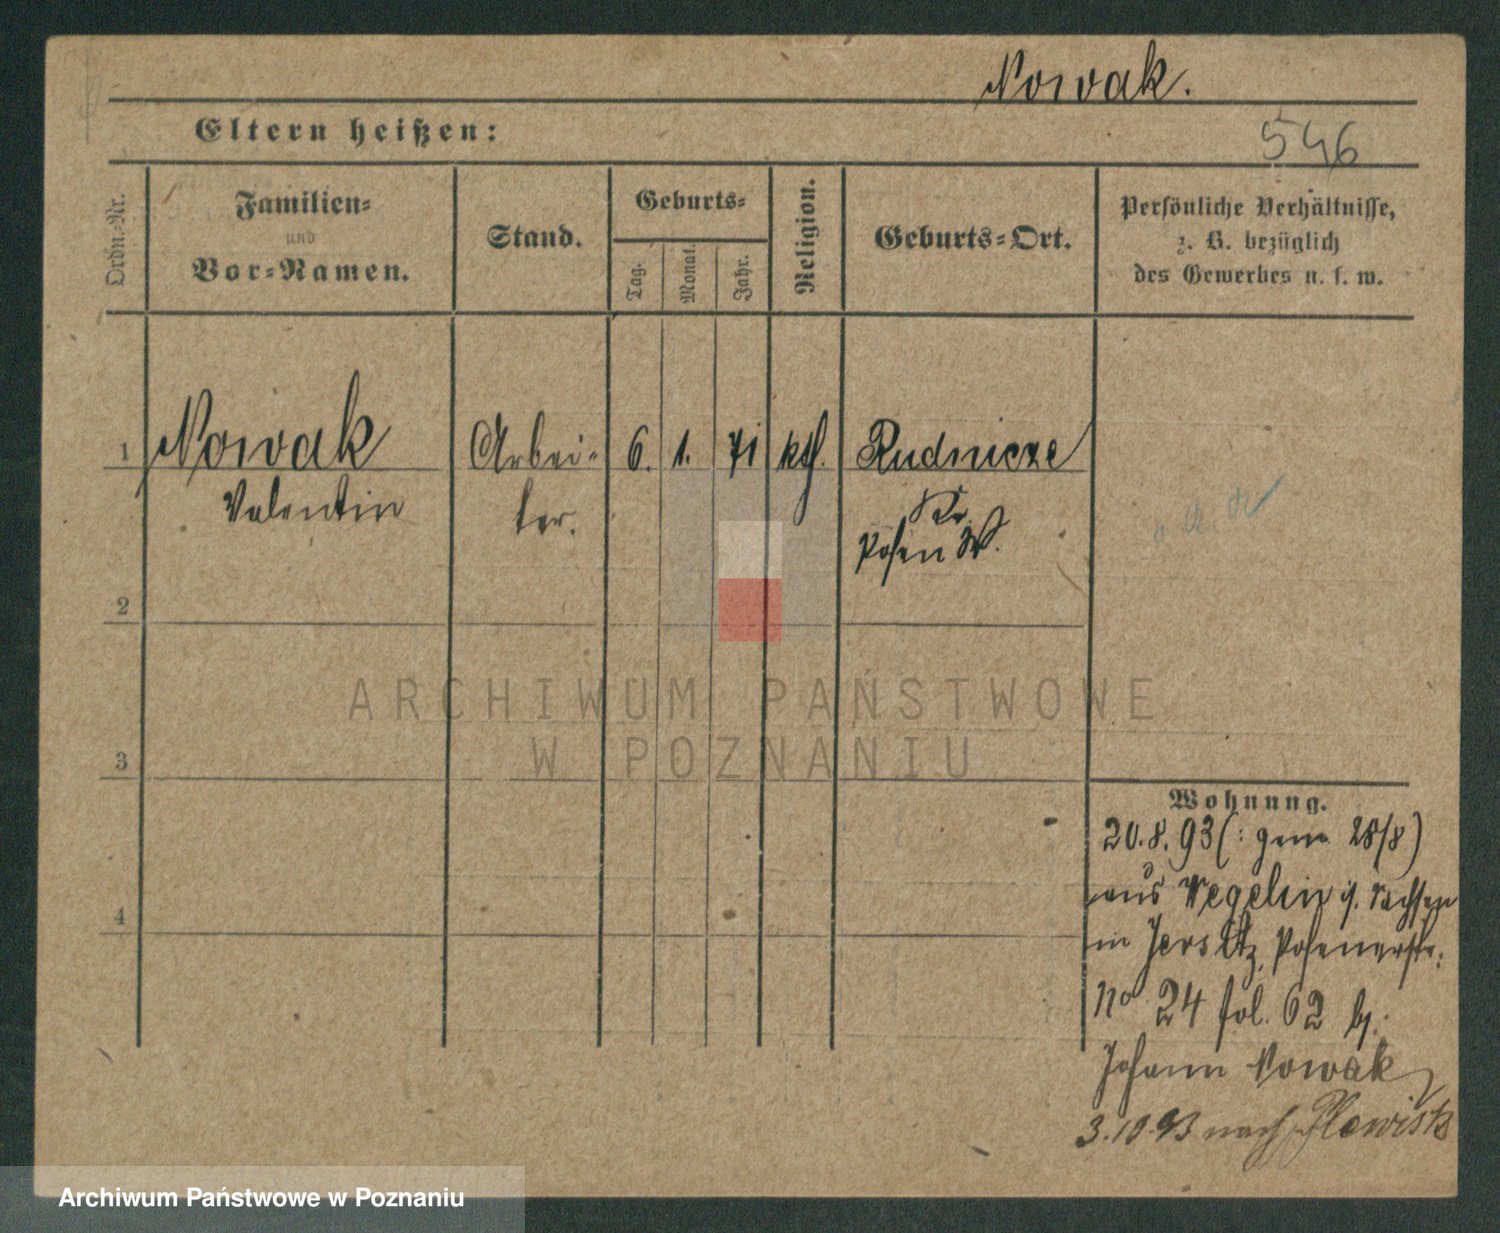 Nowak.
Eltern heißen:
546
Ordn.-Nr.
Familien-
und
Vor-Namen.
Stand.
Geburts-
Tag.
Monat.
Jahr.
Religion.
Geburts-Ort.
Persönliche Verhältnisse,
z. B. bezüglich
des Gewerbes u. s. w.
1 Nowak Arbei- 6. 1. 71 kth. Rudnicze
Valentin ter. Kr.
Posen W.
2
3
4
ARCHIWUM PAŃSTWOWE
W POZNANIU
Wohnung.
20.8.93 (: gem 28/8)
aus Wegelin i. Sachsen
in Jersitz, Posenerstr.
No 24 fol. 62 b.
Johann Nowak
3.10.93 nach Plewisk
Archiwum Państwowe w Poznaniu